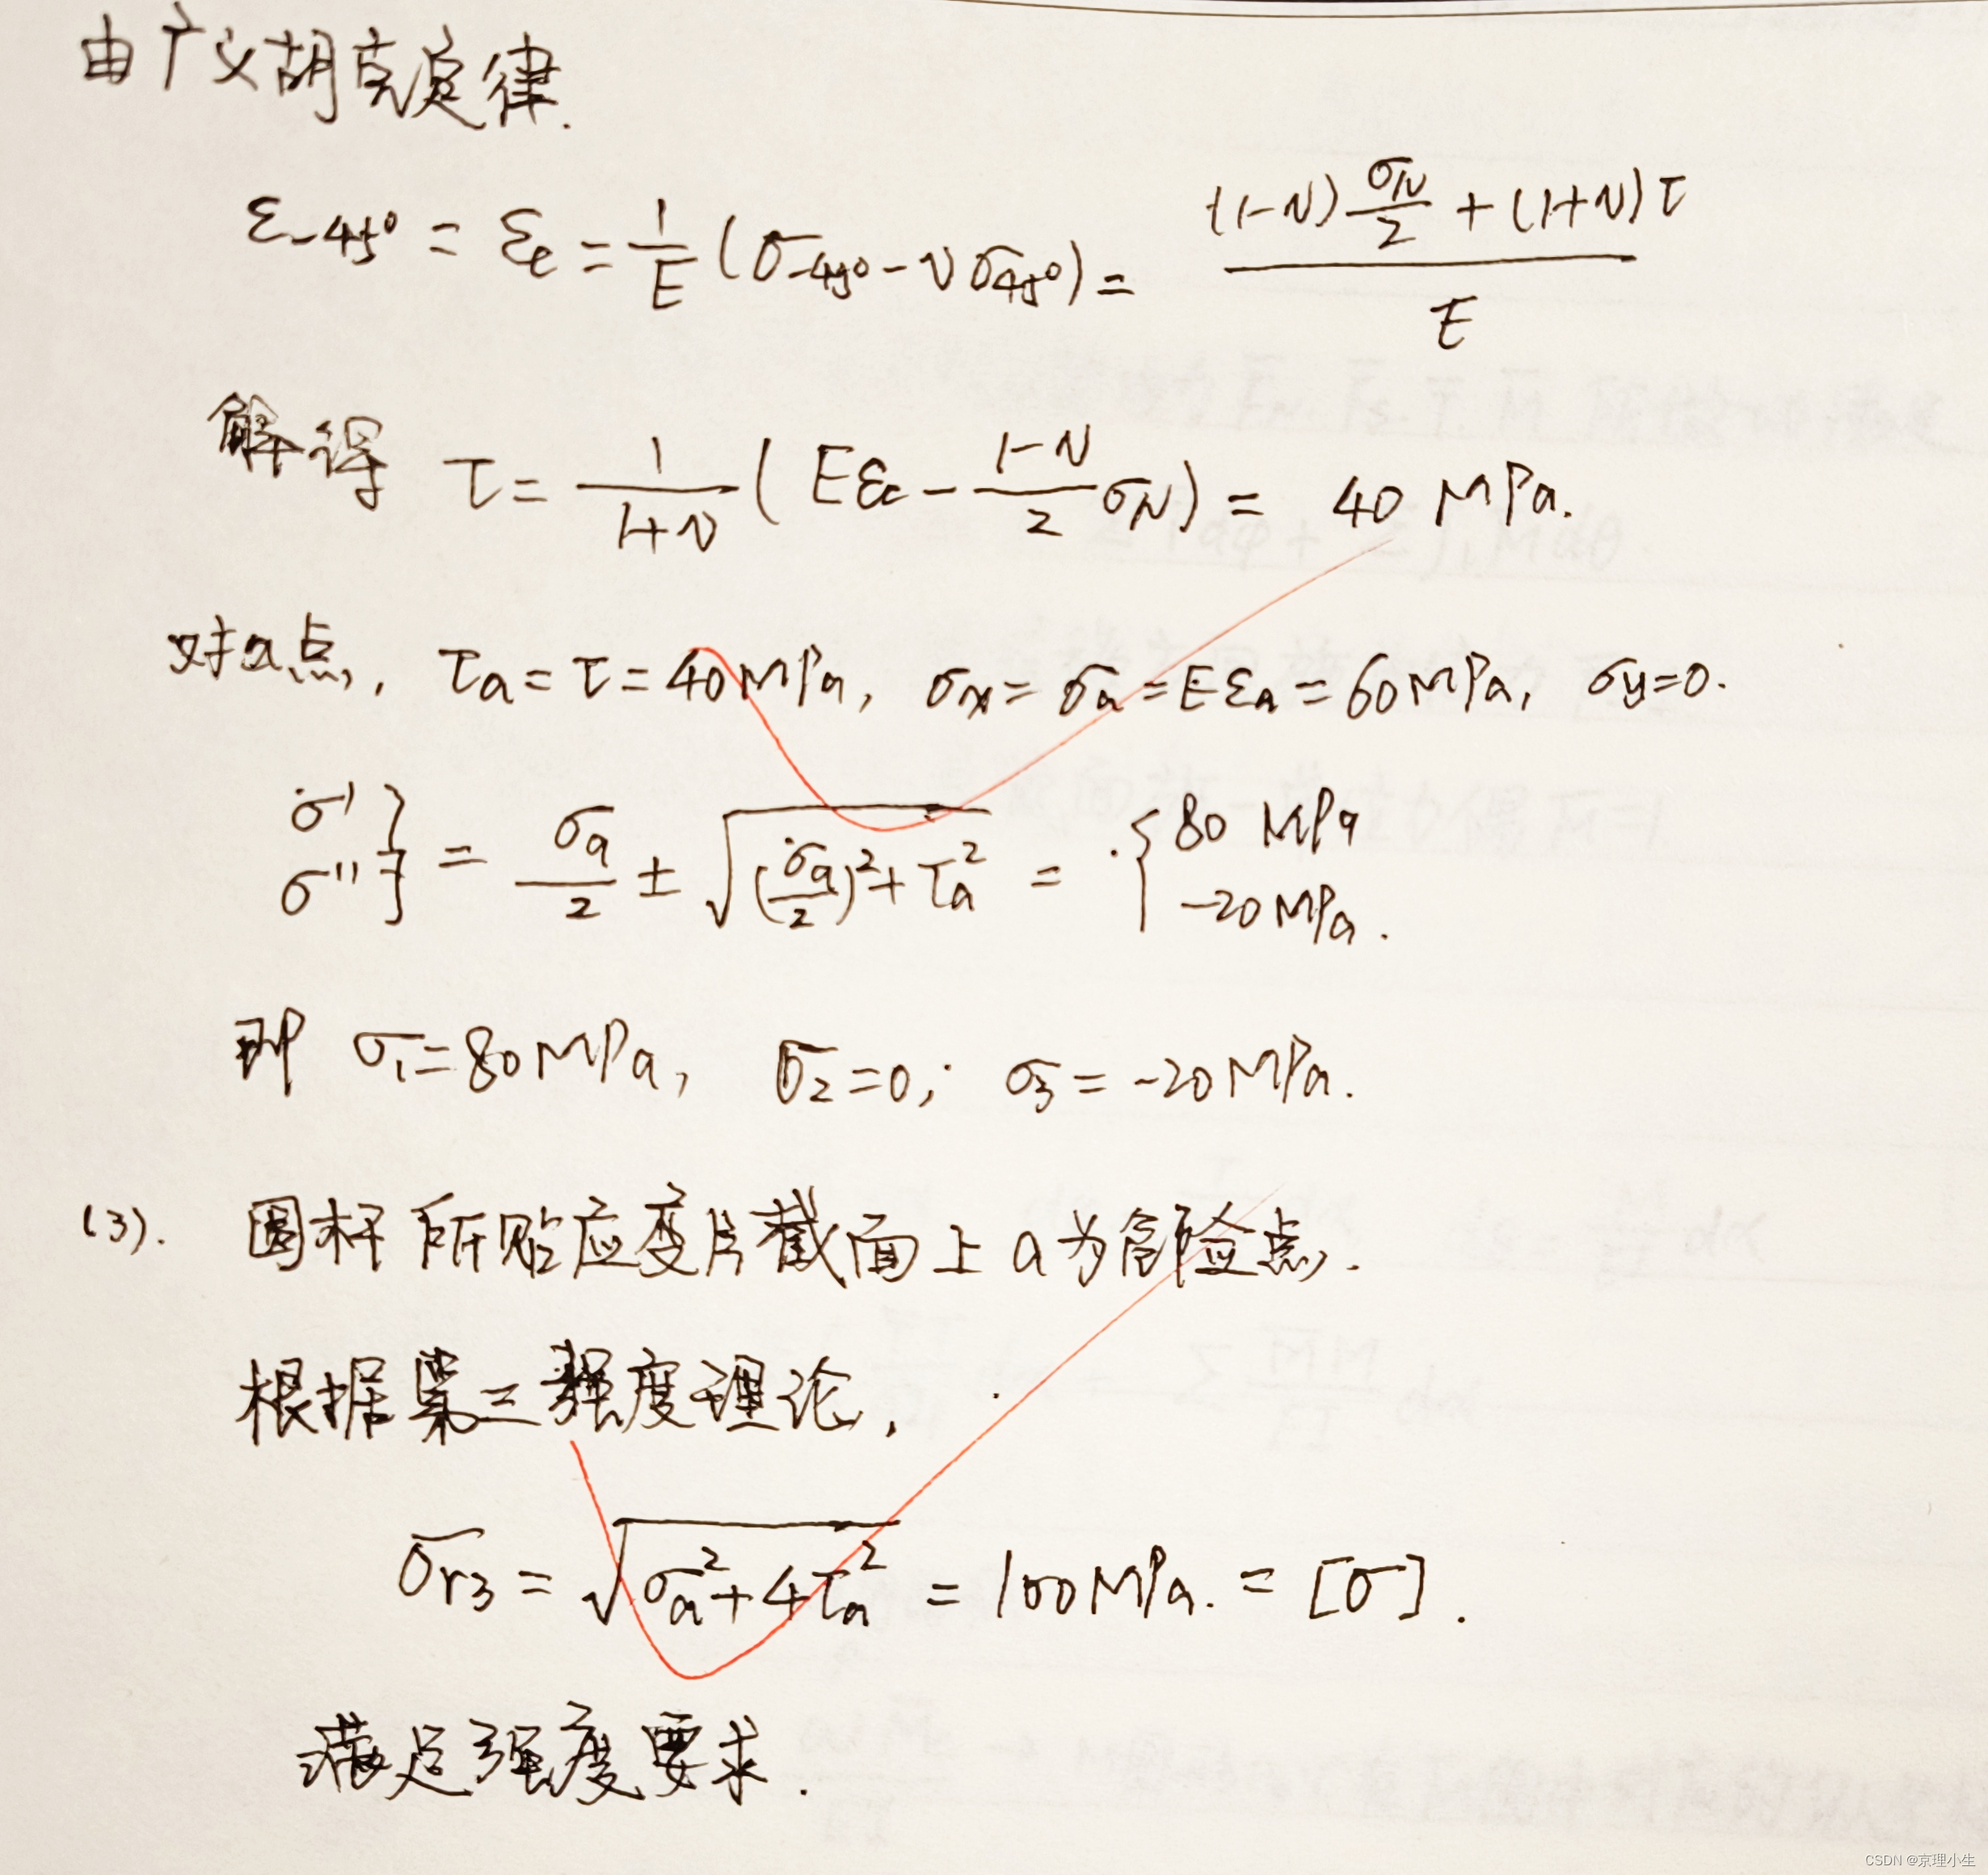 由广义胡克定律.
ε-45° = εc = 1/E (σ-45° - νσ45°) = ((1-ν)σN/2 + (1+ν)τ)/E
解得 τ = 1/(1+ν) (Eεc - (1-ν)/2 σN) = 40 MPa.
对a点, τa = τ = 40MPa, σx = σa = Eεa = 60MPa, σy=0.
σ' σ'' } = σa/2 ± √((σa/2)²+τa²) = { 80 MPa -20MPa.
即 σ1=80MPa, σ2=0; σ3=-20MPa.
(3). 圆杆所贴应变片截面上a为危险点.
根据第三强度理论,
σr3 = √(σa²+4τa²) = 100MPa. = [σ].
满足强度要求.
CSDN @京理小生